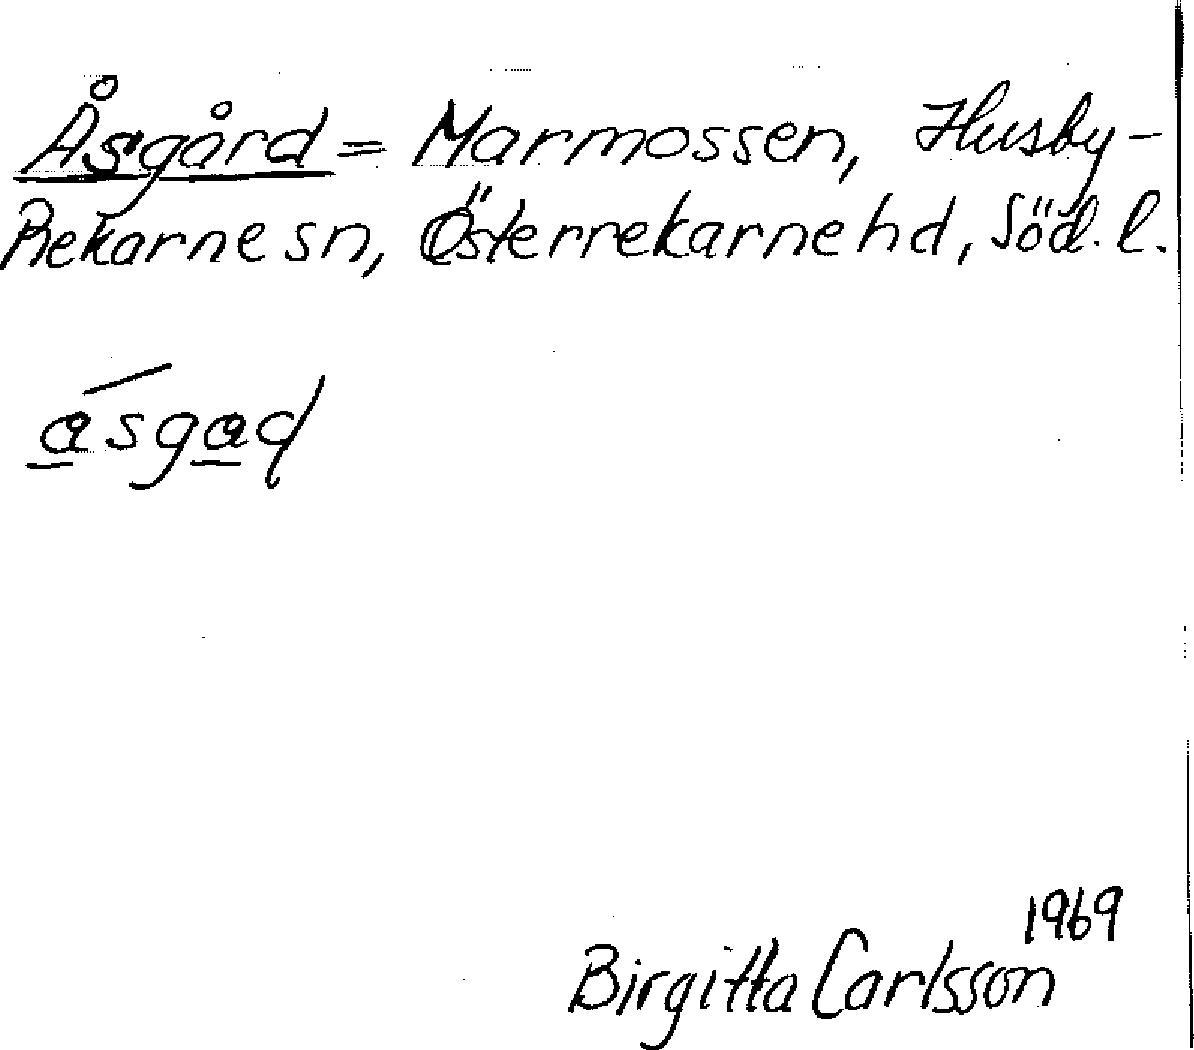 Åsgård = Marmossen, Husby-
Rekarne sn, Österrekarne hd, Söd. l.
a̲´sga̲ɖ
1969
Birgitta Carlsson